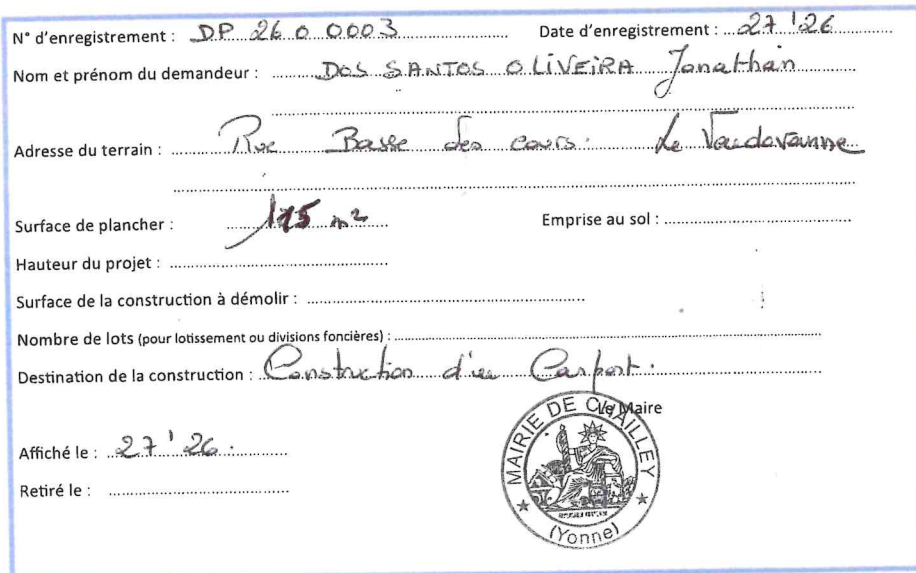 N° d'enregistrement : DP 26 0 0003 Date d'enregistrement : 27 ' 26
Nom et prénom du demandeur : DOS SANTOS OLIVEIRA Jonathan
Adresse du terrain : Rue Basse des cours. Le Vaudevanne
Surface de plancher : m² Emprise au sol :
Hauteur du projet :
Surface de la construction à démolir :
Nombre de lots (pour lotissement ou divisions foncières) :
Destination de la construction : Construction d'un Carport.
Le Maire
Affiché le : 27 ' 26.
Retiré le :
MAIRIE DE CHAILLEY
(Yonne)